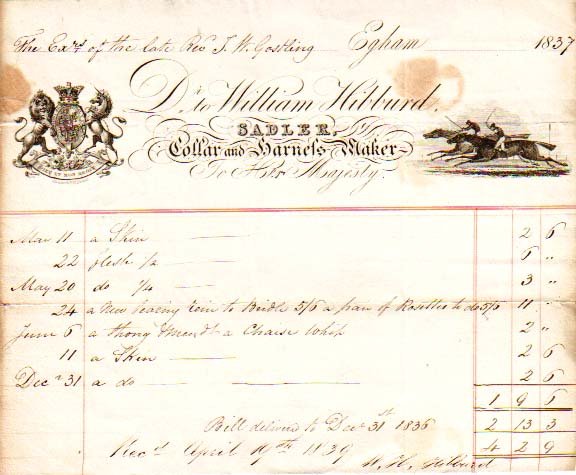 The Exrs of the late Rev J. W. Gostling Egham 1837
Dr. to William Hibburd,
SADLER,
Collar and Harness Maker
To Her Majesty.
DIEU ET MON DROIT
Mar 11 a Skin 2 6
22 flesh 1/2 6 "
May 20 do 1/4 3 "
24 a New bearing rein to Bridle 5/6 a pair of Rosettes to do 5/6 11 "
June 6 a thong & mendg a Chaise Whip 2 "
11 a Skin 2 6
Decr 31 a do 2 6
1 9 6
Bill delivered to Decr 31st 1836 2 13 3
Recd April 19th 1839 4 2 9
W. H. Hibburd